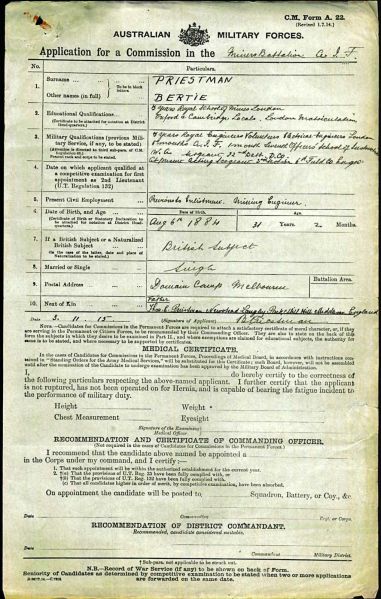 C.M. Form A. 22.
(Revised 1.7.14.)
AUSTRALIAN MILITARY FORCES.
Application for a Commission in the Miners Battalion A.I.F.
No. Particulars.
1. Surname PRIESTMAN
Other names (in full) BERTIE
2. Educational Qualifications. 3 years Royal School of Mines London
(Certificate to be attached for notation at District Head-quarters.) Oxford & Cambridge Locals. London Matriculation
3. Military Qualifications (previous Military Service, if any, to be stated) years Royal Engineers Volunteers Electrical Engineers London
A.I.F. 1 month Officers School of
Date on which applicant qualified at a competitive examination for first appointment as 2nd Lieutenant (U.T. Regulation 132)
5. Present Civil Employment Previously Enlistment. Mining Engineer.
6. Date of Birth, and Age Date of Birth. Age.
Aug 6th 1884 31 Years 2 Months.
7. If a British Subject or a Naturalized British Subject British Subject
8. Married or Single Single
9. Postal Address Domain Camp Melbourne Battalion Area.
10. Next of Kin Father
Date 3. 11. 15 (Signature of Applicant) B. Priestman
NOTE.—Candidates for Commissions in the Permanent Forces are required to attach a satisfactory certificate of moral character, or, if they are serving in the Permanent or Citizen Forces, to be recommended by their Commanding Officers. They are also to state on this form the subjects in which they desire to be examined in Part II., and where exemptions are claimed for educational subjects, the authority for same is to be stated, and where necessary to be supported by certificate.
MEDICAL CERTIFICATE.
In the cases of Candidates for Commissions in the Permanent Forces, Proceedings of Medical Board, in accordance with instructions contained in "Standing Orders for the Army Medical Services," will be substituted for this Certificate; such Board, however, will not be assembled until after the examination of the Candidate unless approved by the Military Board of Administration.
I, do hereby certify to the correctness of
the following particulars respecting the above-named applicant. I further certify that the applicant
is not ruptured, has not been operated on for Hernia, and is capable of bearing the fatigue incident to the
performance of military duty.
Height Weight
Chest Measurement Eyesight
(Signature of the Examining Medical Officer)
RECOMMENDATION AND CERTIFICATE OF COMMANDING OFFICER.
(Not required in the cases of Candidates for Commissions in the Permanent Forces.)
I recommend that the candidate above named be appointed a
in the Corps under my command, and I certify:—
1. That such appointment will be within the authorised establishment for the current year.
2. †(a) That the provisions of U.T. Reg. 33 have been fully complied with, or
†(b) That the provisions of U.T. Reg. 132 have been fully complied with.
(c) That all candidates higher in order of merit, by competitive examination, have been absorbed.
On appointment the candidate will be posted to, Squadron, Battery, or Coy., &c.
Date Commanding Regt. or Corps.
RECOMMENDATION OF DISTRICT COMMANDANT.
Recommended, candidate considered suitable.
Date Commandant Military District.
† Sub-para. not applicable to be struck out.
N.B.—Record of War Service (if any) to be shown on back of Form.
Seniority of Candidates as determined by competitive examination to be stated when two or more applications
are forwarded on the same date.